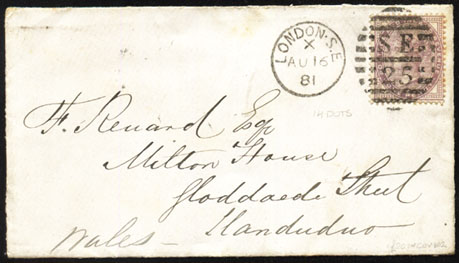 LONDON·S.E
X
AU 16
81
S.E
25
14 DOTS
F. Renard Esq
Milton House
Gloddaede Street
Llandudno
Wales